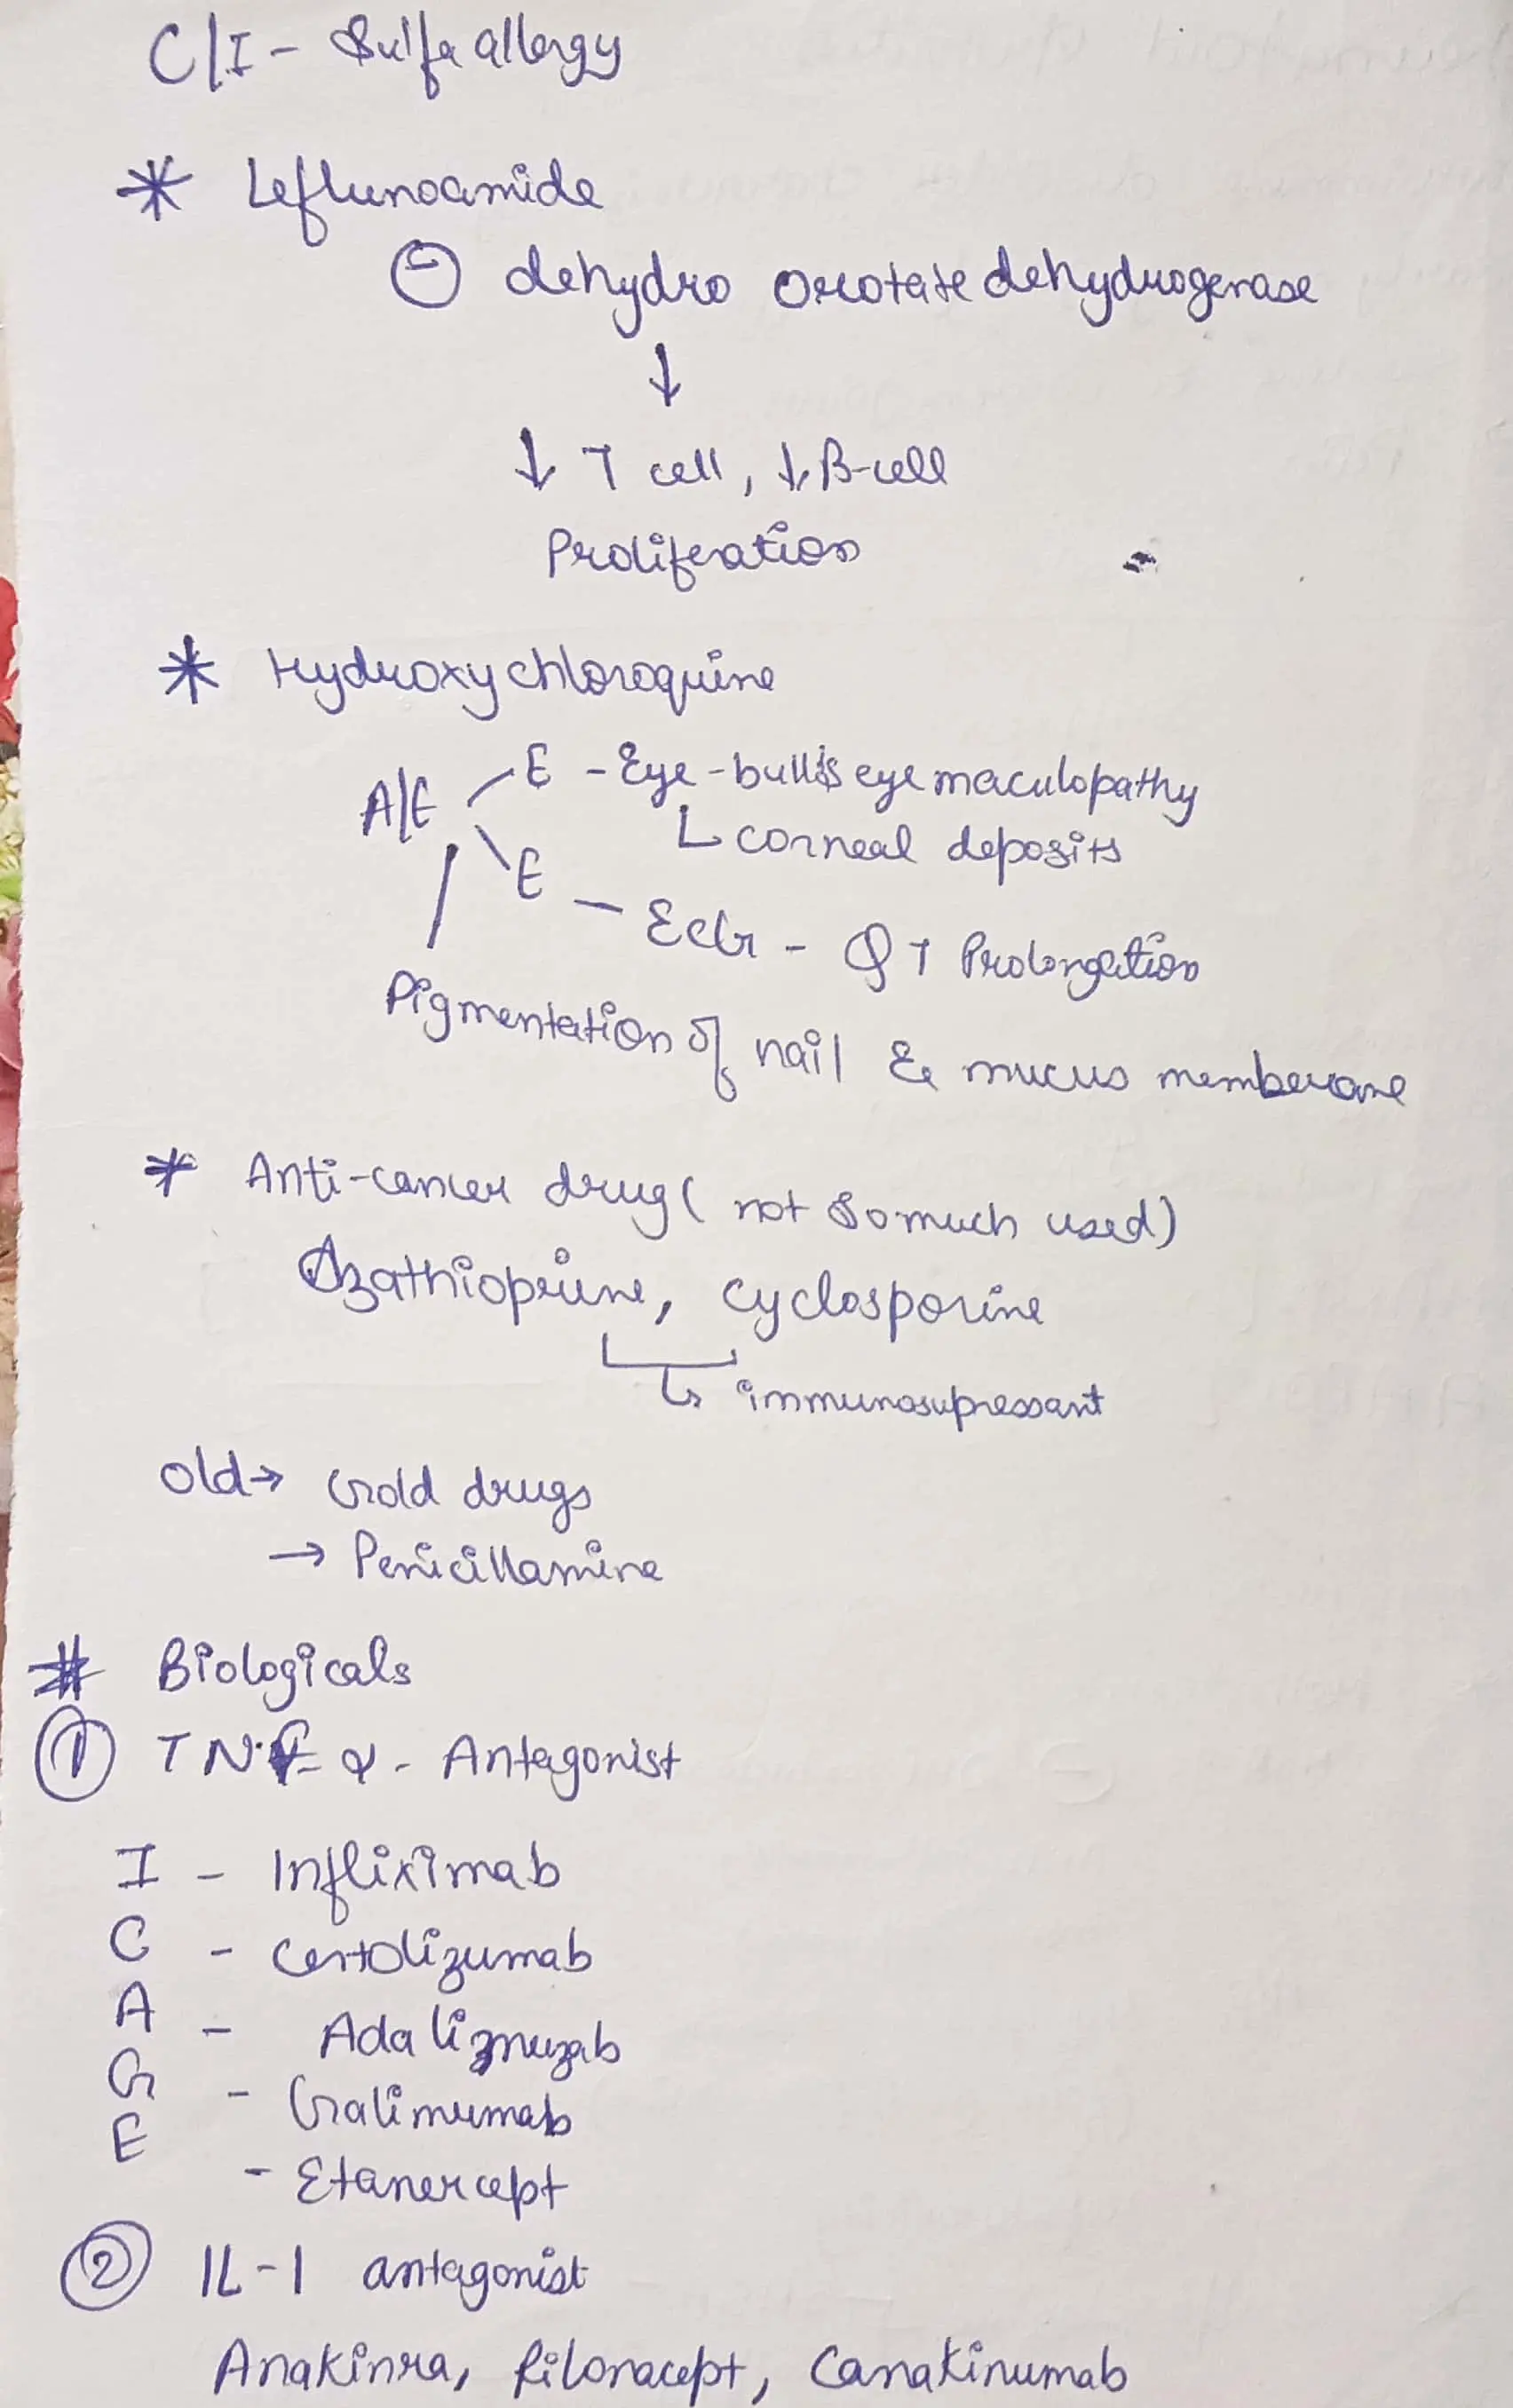 C/I - Sulfa allergy
* Leflunoamide
⊖ dehydro orotate dehydrogenase
↓
↓ T cell, ↓ B-cell
Proliferation
* Hydroxychloroquine
A/E - E - Eye - bull's eye maculopathy
↳ corneal deposits
E - ECG - QT Prolongation
Pigmentation of nail & mucus memberane
* Anti-cancer drug (not so much used)
Azathioprine, cyclosporine
↳ immunosupressant
Old → Gold drugs
→ Penicillamine
# Biologicals
① TNF-α - Antagonist
I - Infliximab
C - Certolizumab
A - Adalizmuzab
G - Galimumab
E - Etanercept
② IL-1 antagonist
Anakinra, Rilonacept, Canakinumab